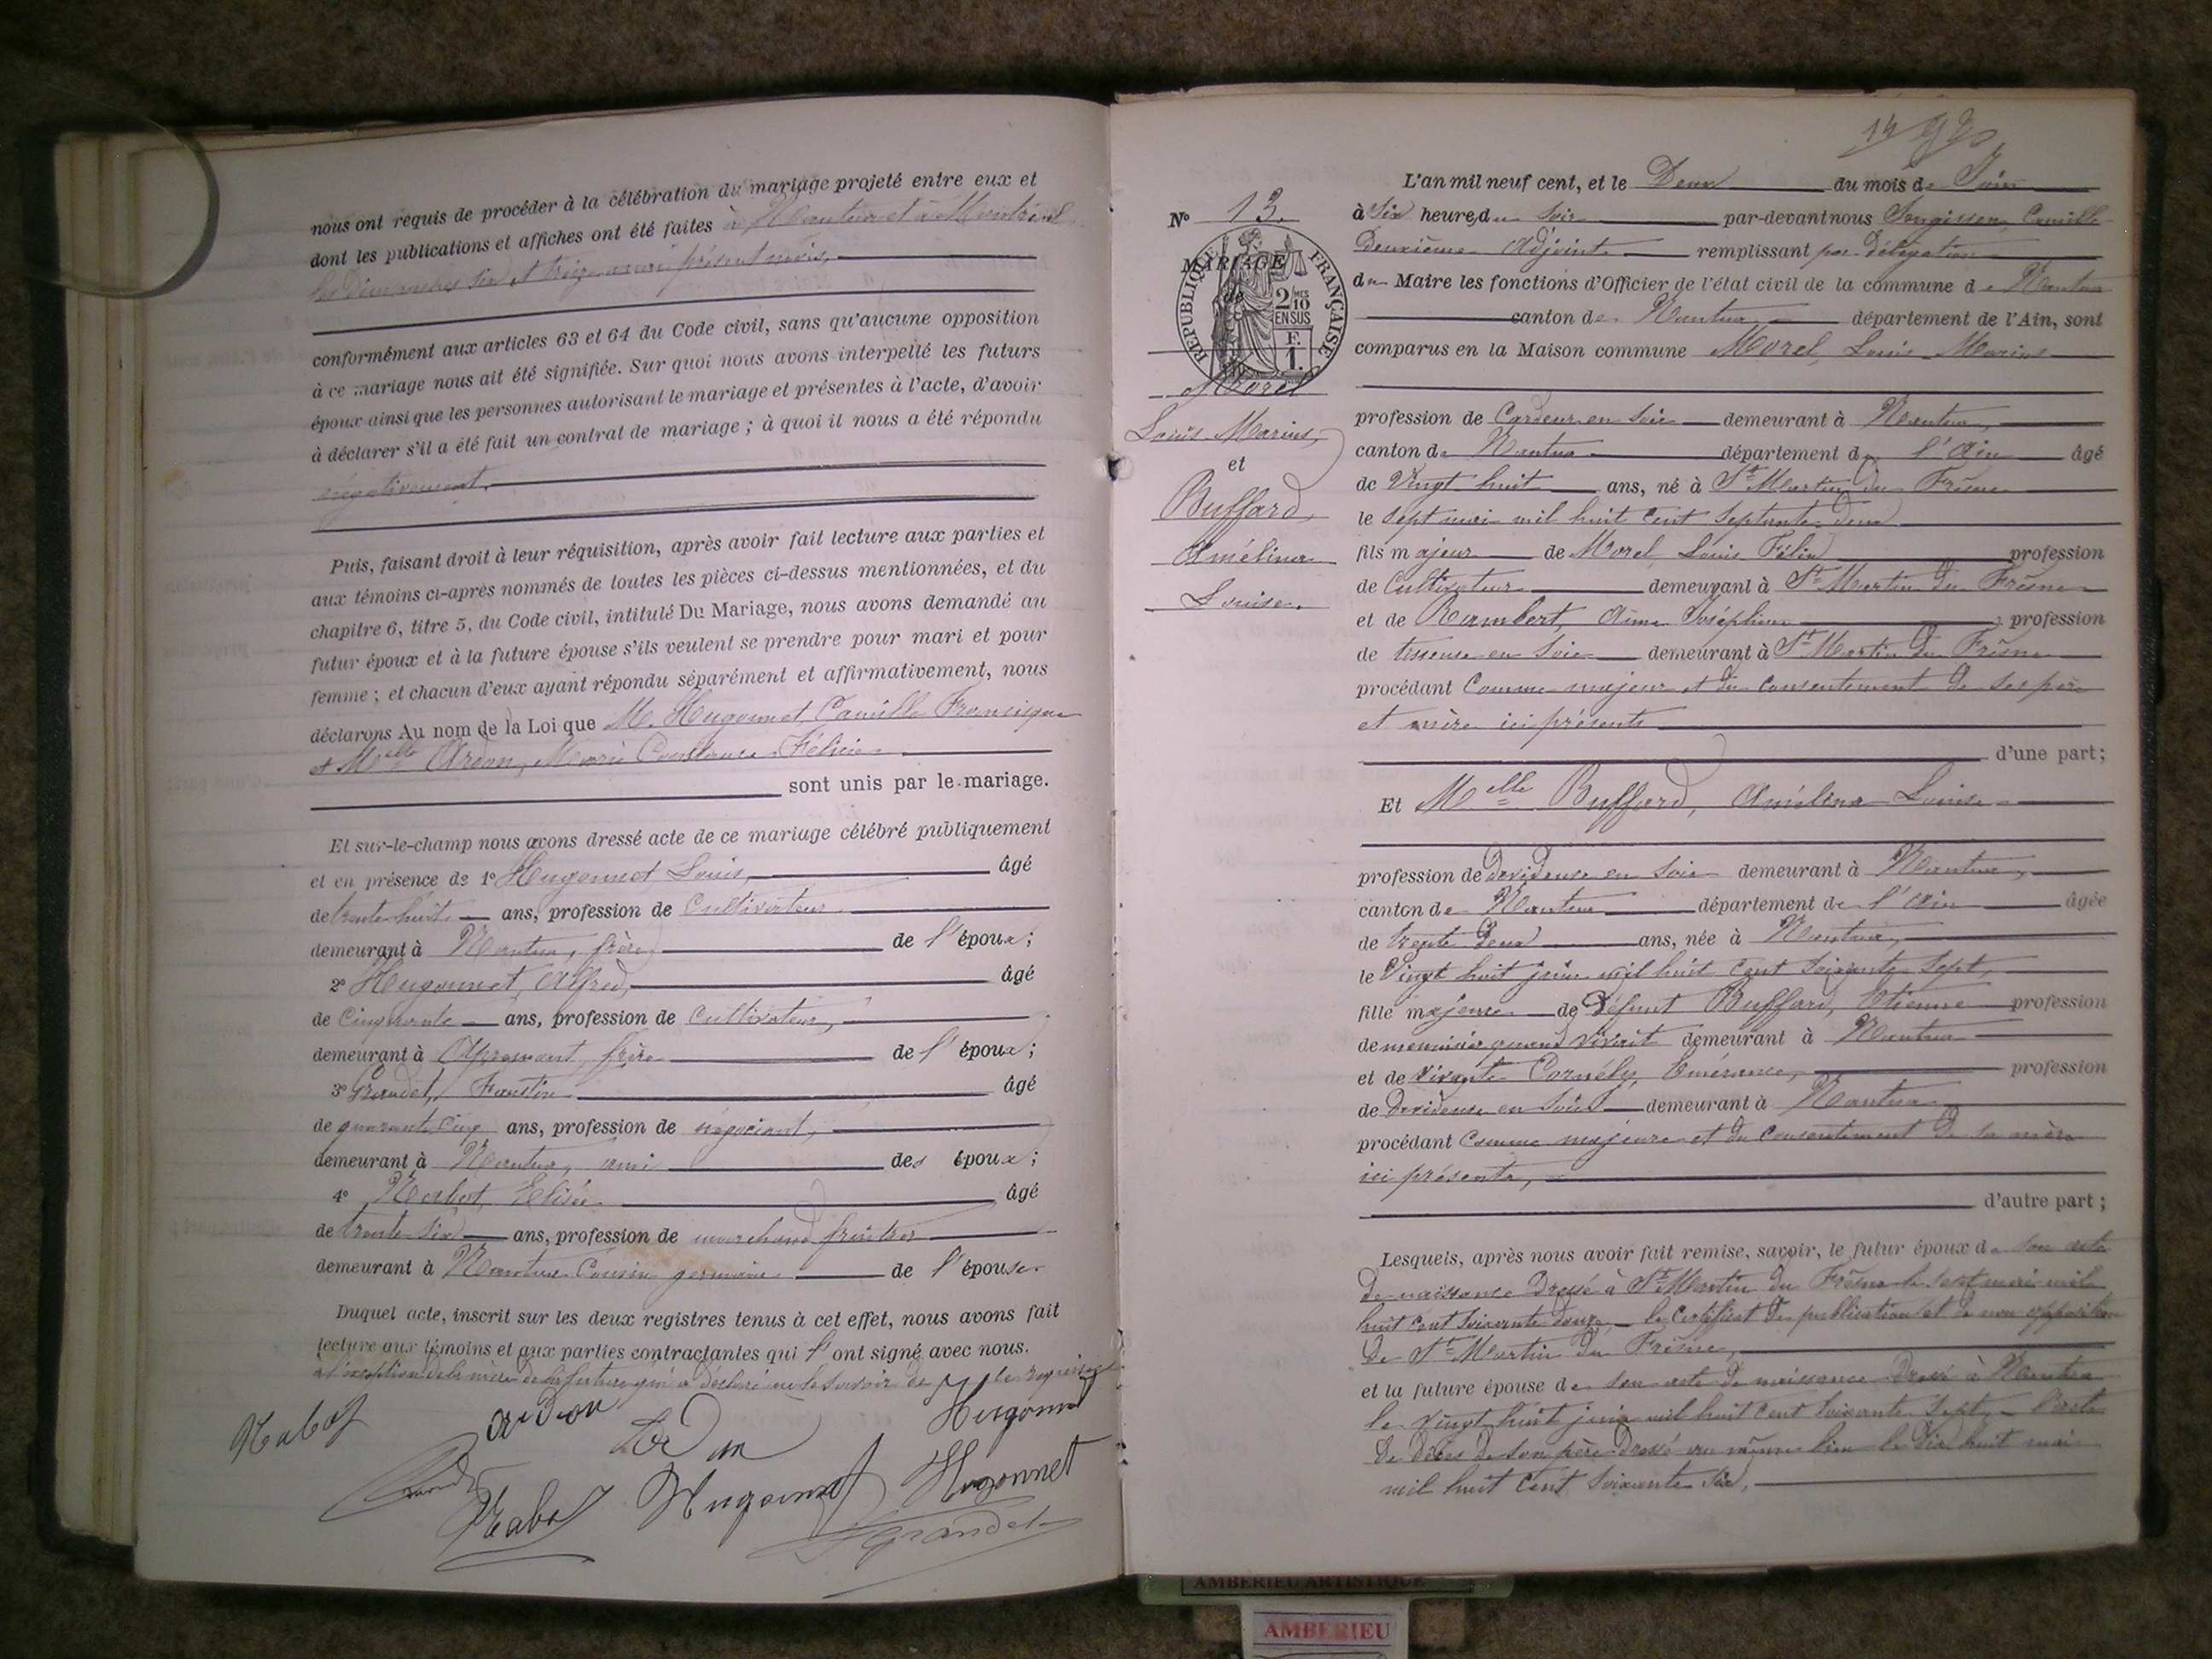 nous ont requis de procéder à la célébration du mariage projeté entre eux et
dont les publications et affiches ont été faites à Nantua et à Montréal
les dimanches six et treize mai présent mois,
conformément aux articles 63 et 64 du Code civil, sans qu'aucune opposition
à ce mariage nous ait été signifiée. Sur quoi nous avons interpellé les futurs
époux ainsi que les personnes autorisant le mariage et présentes à l'acte, d'avoir
à déclarer s'il a été fait un contrat de mariage ; à quoi il nous a été répondu
négativement.
Puis, faisant droit à leur réquisition, après avoir fait lecture aux parties et
aux témoins ci-après nommés de toutes les pièces ci-dessus mentionnées, et du
chapitre 6, titre 5, du Code civil, intitulé Du Mariage, nous avons demandé au
futur époux et à la future épouse s'ils veulent se prendre pour mari et pour
femme ; et chacun d'eux ayant répondu séparément et affirmativement, nous
déclarons Au nom de la Loi que M. Hugonnet, Camille Francisque
et Melle Ardon, Marie Constance Félicie
sont unis par le mariage.
Et sur-le-champ nous avons dressé acte de ce mariage célébré publiquement
et en présence de 1° Hugonnet Louis, âgé
de trente huit ans, profession de Cultivateur
demeurant à Nantua, frère de l'époux ;
2° Hugonnet, Alfred, âgé
de Cinquante ans, profession de Cultivateur,
demeurant à Apremont, frère de l'époux ;
3° Grandet, Faustin âgé
de quarante cinq ans, profession de négociant,
demeurant à Nantua, ami des époux ;
4° Nabot, Elisée âgé
de trente six ans, profession de marchand
demeurant à Nantua Cousin germain de l'épouse.
Duquel acte, inscrit sur les deux registres tenus à cet effet, nous avons fait
lecture aux témoins et aux parties contractantes qui l'ont signé avec nous.
à l'exception de la mère de la future qui a déclaré ne le savoir de ce requise
Nabot
Ardon
Hugonnet
Nabot
Hugonnet
Hugonnet
Grandet
N° 13.
MARIAGE
de
RÉPUBLIQUE FRANÇAISE
2/10MES
EN SUS
F.
1.
Morel
Louis Marius,
et
Buffard,
Amélina
Louise.
L'an mil neuf cent, et le Deux du mois de Juin
à Six heures du Soir par-devant nous Camille
Deuxième Adjoint remplissant par délégation
du Maire les fonctions d'Officier de l'état civil de la commune de Nantua
canton de Nantua département de l'Ain, sont
comparus en la Maison commune Morel, Louis Marius
profession de Cardeur en Soie demeurant à Nantua,
canton de Nantua département de l'Ain âgé
de Vingt huit ans, né à St Martin du Frêsne
le sept mai mil huit cent septante deux
fils majeur de Morel, Louis Félix profession
de Cultivateur demeurant à St Martin du Frêsne
et de Rambert, Joséphine profession
de tisseuse en Soie demeurant à St Martin du Frêsne
procédant Comme majeur et du Consentement de ses père
et mère ici présents
d'une part ;
Et Melle Buffard, Amélina Louise
profession de Devideuse en Soie demeurant à Nantua,
canton de Nantua département de l'Ain âgée
de trente deux ans, née à Nantua,
le Vingt huit juin mil huit cent soixante sept,
fille majeure de Défunt Buffard, Etienne profession
de menuisier quand vivait demeurant à Nantua
et de vivante Cornély, Emérance, profession
de Devideuse en Soie demeurant à Nantua
procédant Comme majeure et du Consentement de sa mère
ici présente,
d'autre part ;
Lesquels, après nous avoir fait remise, savoir, le futur époux de son acte
de naissance Dressé à St Martin du Frêsne le sept mai mil
huit cent soixante douze le Certificat de publication et de non opposition
de St Martin du Frêsne,
et la future épouse de son acte de naissance Dressé à Nantua
le vingt huit juin mil huit cent soixante sept l'acte
de décès de son père Dressé au même lieu le Dix huit mai
mil huit Cent soixante Six,
AMBERIEU ARTISTIQUE
AMBERIEU